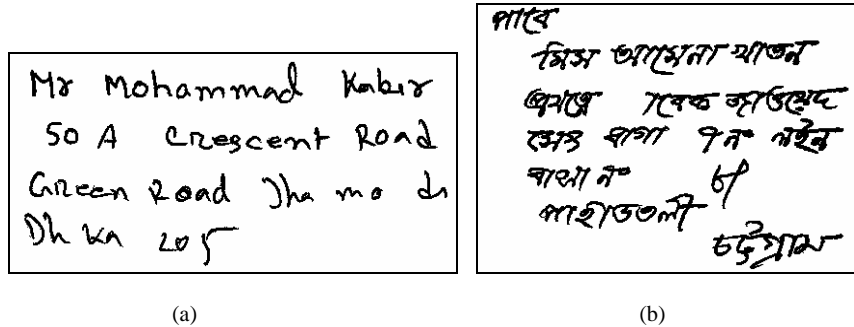 Mr Mohammad Kabir
50 A Crescent Road
Green Road Dha mo di
Dh ka 205
(a)
পাবে
মিস আমেনা খাতুন
প্রযত্নে জাওয়েদ
বাগা ৭ নং লইন
বাসা নং ৮/
পাহাড়তলী
চট্টগ্রাম
(b)